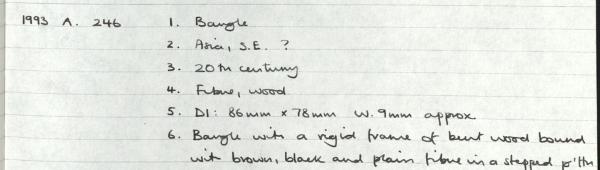 1993 A. 246 1. Bangle
2. Asia, S.E. ?
3. 20th century
4. Fibre, wood
5. DI: 86mm x 78mm W. 9mm approx
6. Bangle with a rigid frame of bent wood bound
with brown, black and plain fibre in a stepped p'ttn